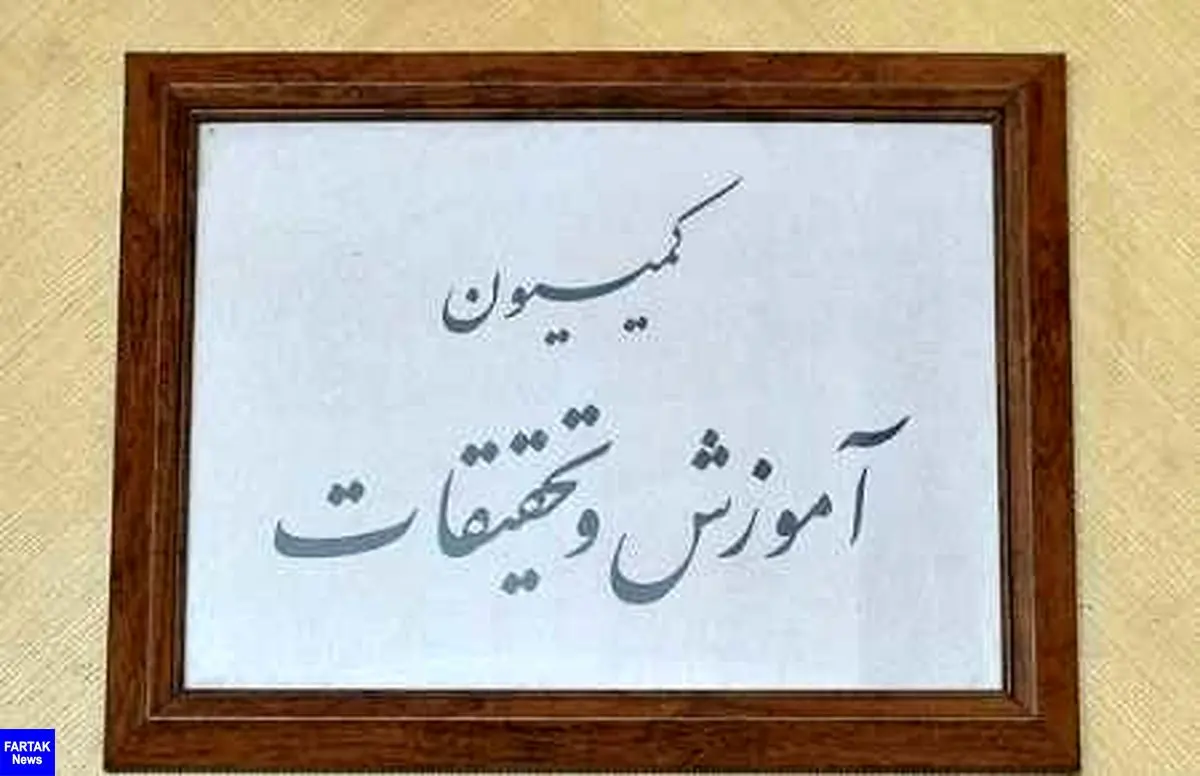 کمیسیون
آموزش و تحقیقات
FARTAK
News